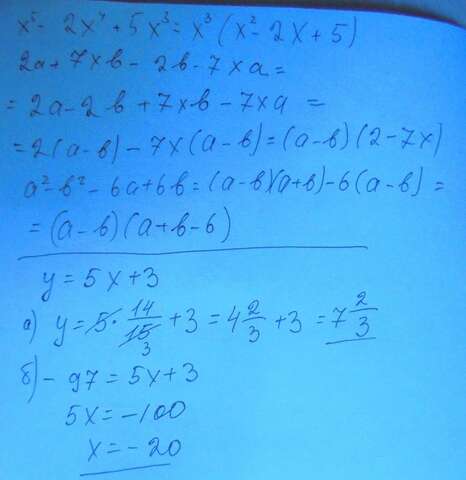 x⁵ - 2x⁴ + 5x³ = x³(x² - 2x + 5)
2a + 7xb - 2b - 7xa =
= 2a - 2b + 7xb - 7xa =
= 2(a - b) - 7x(a - b) = (a - b)(2 - 7x)
a² - b² - 6a + 6b = (a - b)(a + b) - 6(a - b) =
= (a - b)(a + b - 6)
y = 5x + 3
а) y = 5 · 14/15 3 + 3 = 4 2/3 + 3 = 7 2/3
б) - 97 = 5x + 3
5x = -100
x = - 20